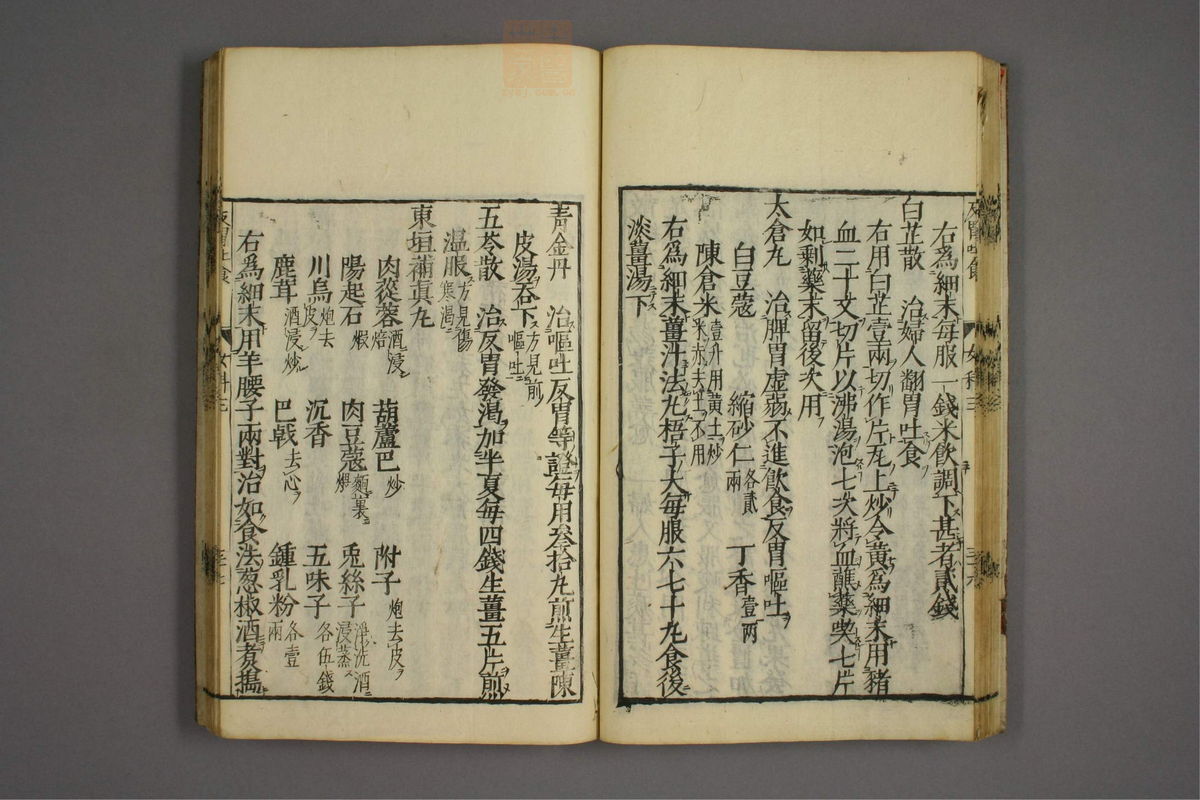 反胃吐食
女科三
三十六
右爲細末每服一錢米飲調下甚者貳錢
白芷散 治婦人翻胃吐食
右用白芷壹兩切作片瓦上炒令黃爲細末用豬
血二十文切片以沸湯泡七次將血蘸藥喫七片
如剩藥末留後次用
太倉丸 治脾胃虛弱不進飲食反胃嘔吐
白豆蔻 縮砂仁各貳兩 丁香壹兩
陳倉米壹升用黃土炒米赤去土不用
右爲細末薑汁法丸梧子大每服六七十丸食後
淡薑湯下
青金丹 治嘔吐反胃等證每用叁拾丸煎生薑陳
皮湯吞下方見前嘔吐
五苓散 治反胃發渴加半夏每四錢生薑五片煎
温服方見傷寒渴
東垣補真丸
肉蓯蓉酒浸焙 葫蘆巴炒 附子炮去皮
陽起石煆 肉豆蔻麵裹煨 兎絲子淨洗酒浸蒸
川烏炮去皮 沉香 五味子各伍錢
鹿茸酒浸炒 巴戟去心 鍾乳粉各壹兩
右爲細末用羊腰子兩對治如食法葱椒酒煮搗
反胃吐食
女科三
三十七